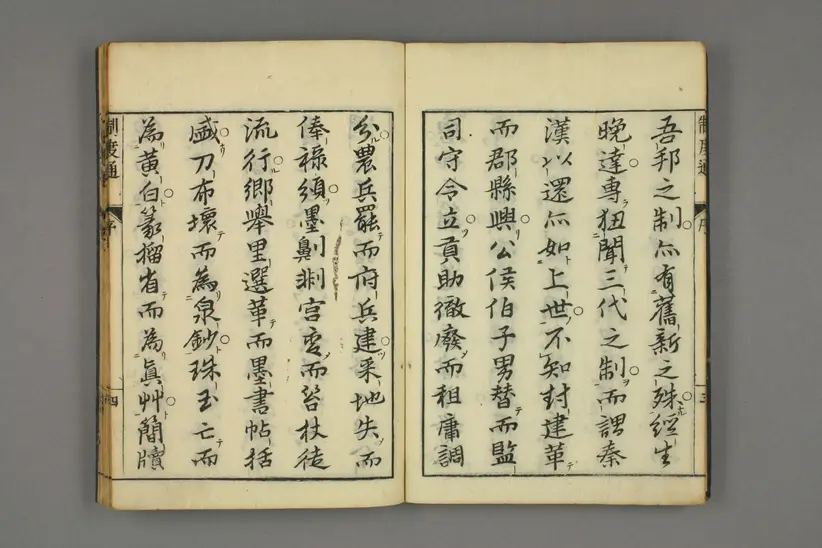 制度通 序 三
吾邦之制亦有舊新之殊經生
晩達專狃聞三代之制而謂秦
漢以還亦如上世不知封建革
而郡縣興公侯伯子男替而監
司守令立貢助徹廢而租庸調
分農兵罷而府兵建采地失而
俸祿頒墨劓剕宮變而笞杖徒
流行鄉舉里選革而墨書帖括
盛刀布壞而為泉鈔珠玉亡而
為黃白篆籀省而為眞艸簡牘
制度通 序 四